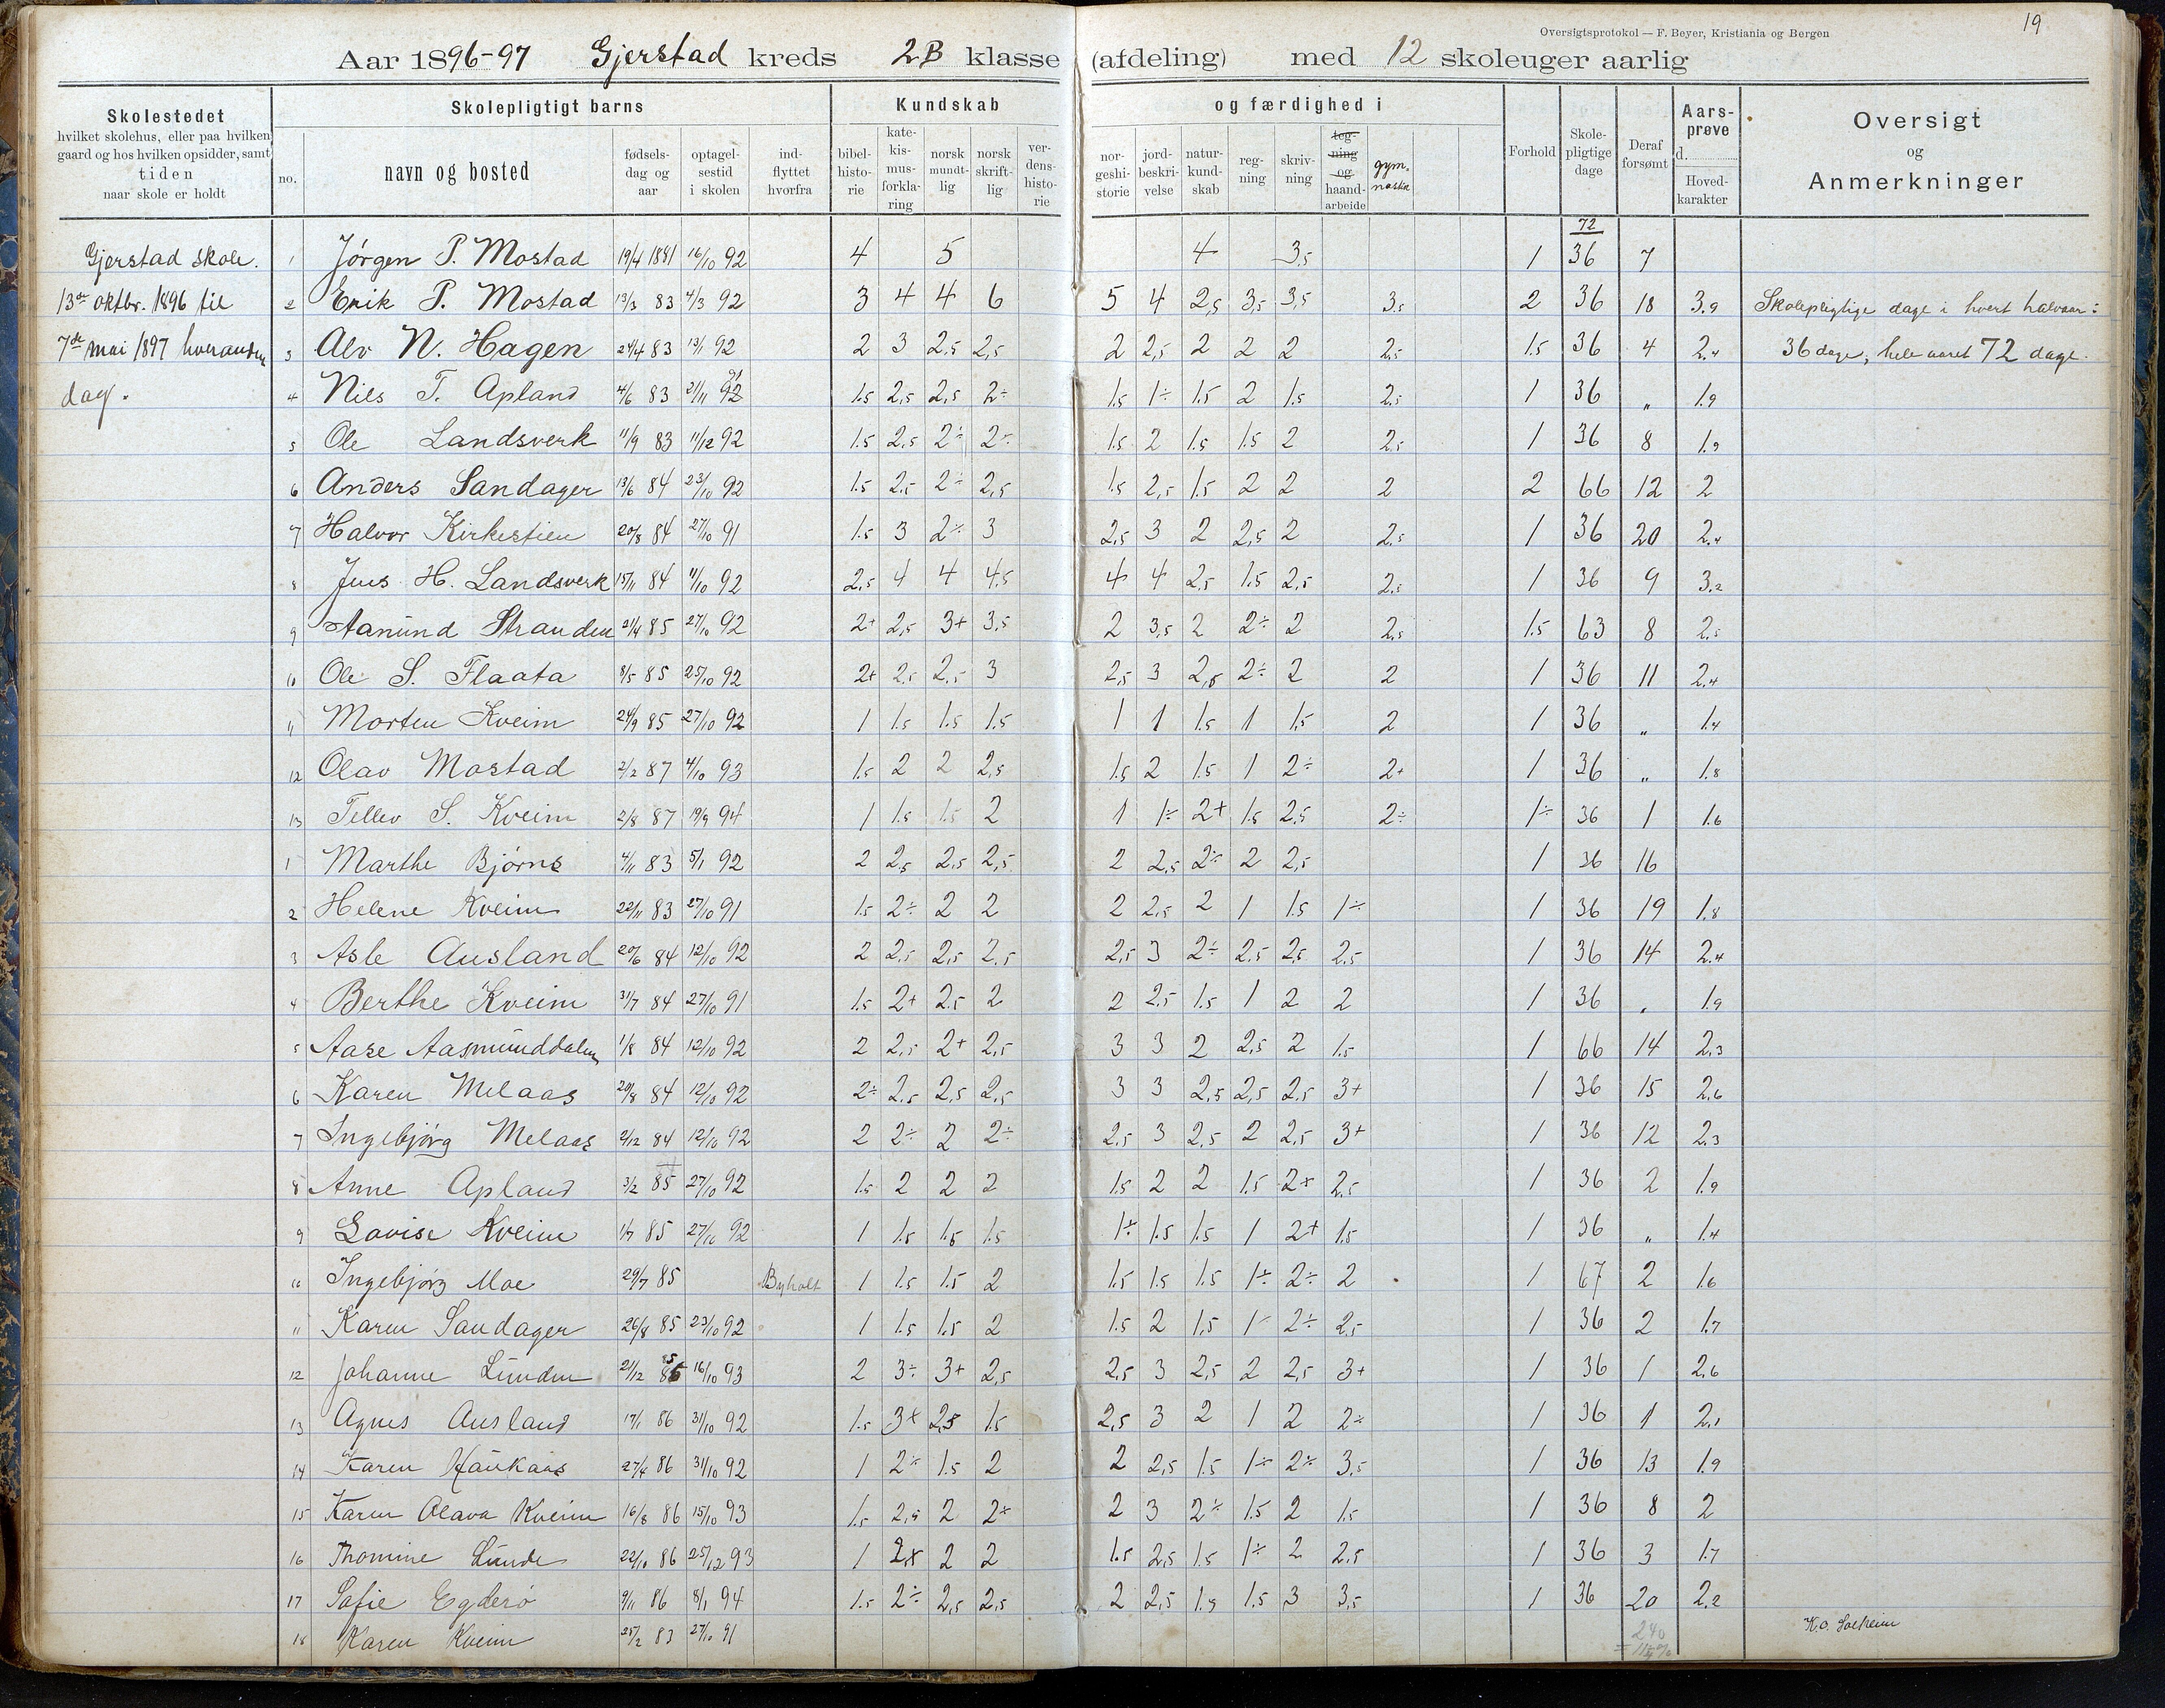 19
Oversigtsprotokol — F. Beyer, Kristiania og Bergen
Aar 1896-97 Gjerstad kreds 2B klasse (afdeling) med 12 skoleuger aarlig
Skolestedet
hvilket skolehus, eller paa hvilken
gaard og hos hvilken opsidder, samt
tiden
naar skole er holdt
Skolepligtigt barns
no.
navn og bosted
fødsels-
dag og
aar
optagel-
sestid
i skolen
ind-
flyttet
hvorfra
Kundskab og færdighed i
bibel-
histo-
rie
kate-
kis-
mus-
forkla-
ring
norsk
mundt-
lig
norsk
skrift-
lig
ver-
dens-
histo-
rie
nor-
geshi-
storie
jord-
beskri-
velse
natur-
kund-
skab
reg-
ning
skriv-
ning
teg-
ning
og
haand-
arbeide
gym-
nastik
Forhold
Skole-
pligtige
dage
Deraf
forsømt
Aars-
prøve
d.
Hoved-
karakter
Oversigt
og
Anmerkninger
72
Gjerstad skole.
13de oktbr. 1896 til
7de mai 1897 hveranden
dag.
1 Jørgen P. Mostad 19/4 1881 16/10 92 4 5 4 3,5 1 36 7
2 Erik P. Mostad 13/3 83 4/3 92 3 4 4 6 5 4 2,5 3,5 3,5 3,5 2 36 18 3.9 Skolepligtige dage i hvert halvaar:
3 Alv N. Hagen 24/4 83 13/1 92 2 3 2,5 2,5 2 2,5 2 2 2 2,5 1.5 36 4 2.4 36 dage, hele aaret 72 dage.
4 Nils T. Apland 4/6 83 21/11 92 91 1.5 2,5 2,5 2÷ 1.5 1÷ 1.5 2 1.5 2,5 1 36 " 1.9
5 Ole Landsverk 11/9 83 11/12 92 1.5 2,5 2÷ 2÷ 1.5 2 1.5 1.5 2 2,5 1 36 8 1.9
6 Anders Sandager 13/6 84 23/10 92 1.5 2,5 2÷ 2,5 1.5 2,5 1.5 2 2 2 2 66 12 2
7 Halvor Kirkestien 20/8 84 27/10 91 1.5 3 2÷ 3 2,5 3 2 2,5 2 2,5 1 36 20 2.4
8 Jens H. Landsverk 15/11 84 11/10 92 2,5 4 4 4,5 4 4 2,5 1.5 2,5 2,5 1 36 9 3.2
9 Aanund Stranden 21/4 85 27/10 92 2+ 2,5 3+ 3,5 2 3,5 2 2÷ 2 2,5 1.5 63 8 2.5
10 Ole S. Flaata 8/5 85 25/10 92 2+ 2,5 2,5 3 2,5 3 2,5 2÷ 2 2 1 36 11 2.4
11 Morten Kveim 24/9 85 27/10 92 1 1.5 1.5 1.5 1 1 1.5 1 1.5 2 1 36 " 1.4
12 Olav Mostad 2/2 87 4/10 93 1.5 2 2 2,5 1.5 2 1.5 1 2÷ 2+ 1 36 " 1.8
13 Tellev S. Kveim 2/8 87 19/9 94 1 1.5 1.5 2 1 1÷ 2+ 1.5 2,5 2÷ 1÷ 36 1 1.6
1 Marthe Bjørns 4/11 83 5/1 92 2 2,5 2,5 2,5 2 2,5 2÷ 2 2,5 1 36 16
2 Helene Kveim 22/11 83 27/10 91 1.5 2÷ 2 2 2 2,5 2 1 1.5 1÷ 1 36 19 1.8
3 Asle Ausland 20/6 84 12/10 92 2 2,5 2,5 2,5 2,5 3 2÷ 2,5 2,5 2,5 1 36 14 2.4
4 Berthe Kveim 31/7 84 27/10 91 1.5 2+ 2,5 2 2 2,5 1.5 1 2 2 1 36 . 1.9
5 Aase Aasmunddalen 1/8 84 12/10 92 2 2,5 2+ 2,5 3 3 2 2,5 2 1.5 1 66 14 2.3
6 Karen Melaas 20/8 84 12/10 92 2÷ 2,5 2,5 2,5 3 3 2,5 2,5 2,5 3+ 1 36 15 2.6
7 Ingebjørg Melaas 2/12 84 12/10 92 2 2÷ 2 2÷ 2,5 3 2,5 2 2,5 3+ 1 36 12 2.3
8 Anne Apland 3/2 85 27/10 92 1.5 2 2 2 1.5 2 2 1.5 2+ 2,5 1 36 2 1.9
9 Lovise Kveim 1/7 85 27/10 92 1 1.5 1.5 1.5 1÷ 1.5 1.5 1 2+ 1.5 1 36 " 1.4
10 Ingebjørg Moe 29/7 85 Byholt 1 1.5 1.5 2 1.5 1.5 1.5 1÷ 2÷ 2 1 67 2 1.6
11 Karen Sandager 26/8 85 23/10 92 1 1.5 1.5 2 1.5 2 1.5 1÷ 2÷ 2,5 1 36 2 1.7
12 Johanne Lunden 21/12 85 16/10 93 2 3÷ 3+ 2,5 2,5 3 2,5 2 2,5 3+ 1 36 1 2.6
13 Agnes Ausland 17/1 86 31/10 92 1.5 3+ 2,5 1.5 2,5 3 2 1 2 2÷ 1 36 1 2.1
14 Karen Haukaas 27/4 86 31/10 92 1 2÷ 1.5 2 2 2,5 1.5 1÷ 2÷ 3,5 1 36 13 1.9
15 Karen Olava Kveim 16/8 86 15/10 93 1.5 2,5 2 2÷ 2 3 2÷ 1.5 2 1.5 1 36 8 2
16 Thomine Lunde 22/10 86 25/12 93 1 2,5 2 2 1.5 2,5 1.5 1÷ 2 2,5 1 36 3 1.7
17 Sofie Egderø 9/11 86 8/1 94 1.5 2÷ 2,5 2,5 2 2,5 1.5 1.5 3 3,5 1 36 20 2.2
18 Karen Kveim 25/2 83 27/10 91 240
K.O. Solheim